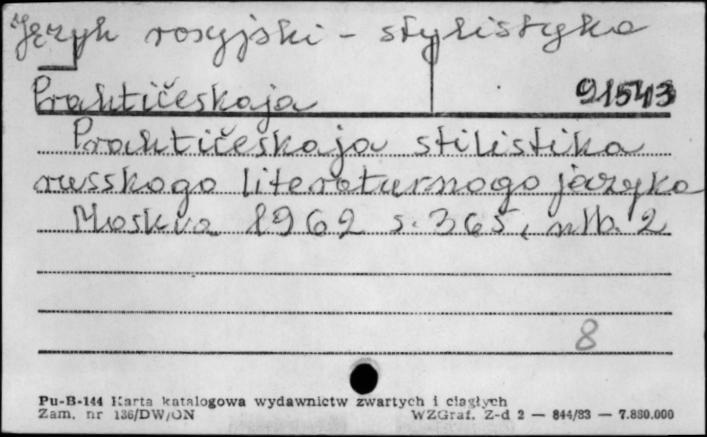 Język rosyjski - stylistyka
Praktičeskaja 91543
Praktičeskaja stilistika
russkogo literaturnogo jazyka
Moskva 1962 s. 365, nlb. 2
8
Pu-B-144 Karta katalogowa wydawnictw zwartych i ciągłych
Zam. nr 136/DW/ON WZGraf. Z-d 2 — 844/83 — 7.880.000